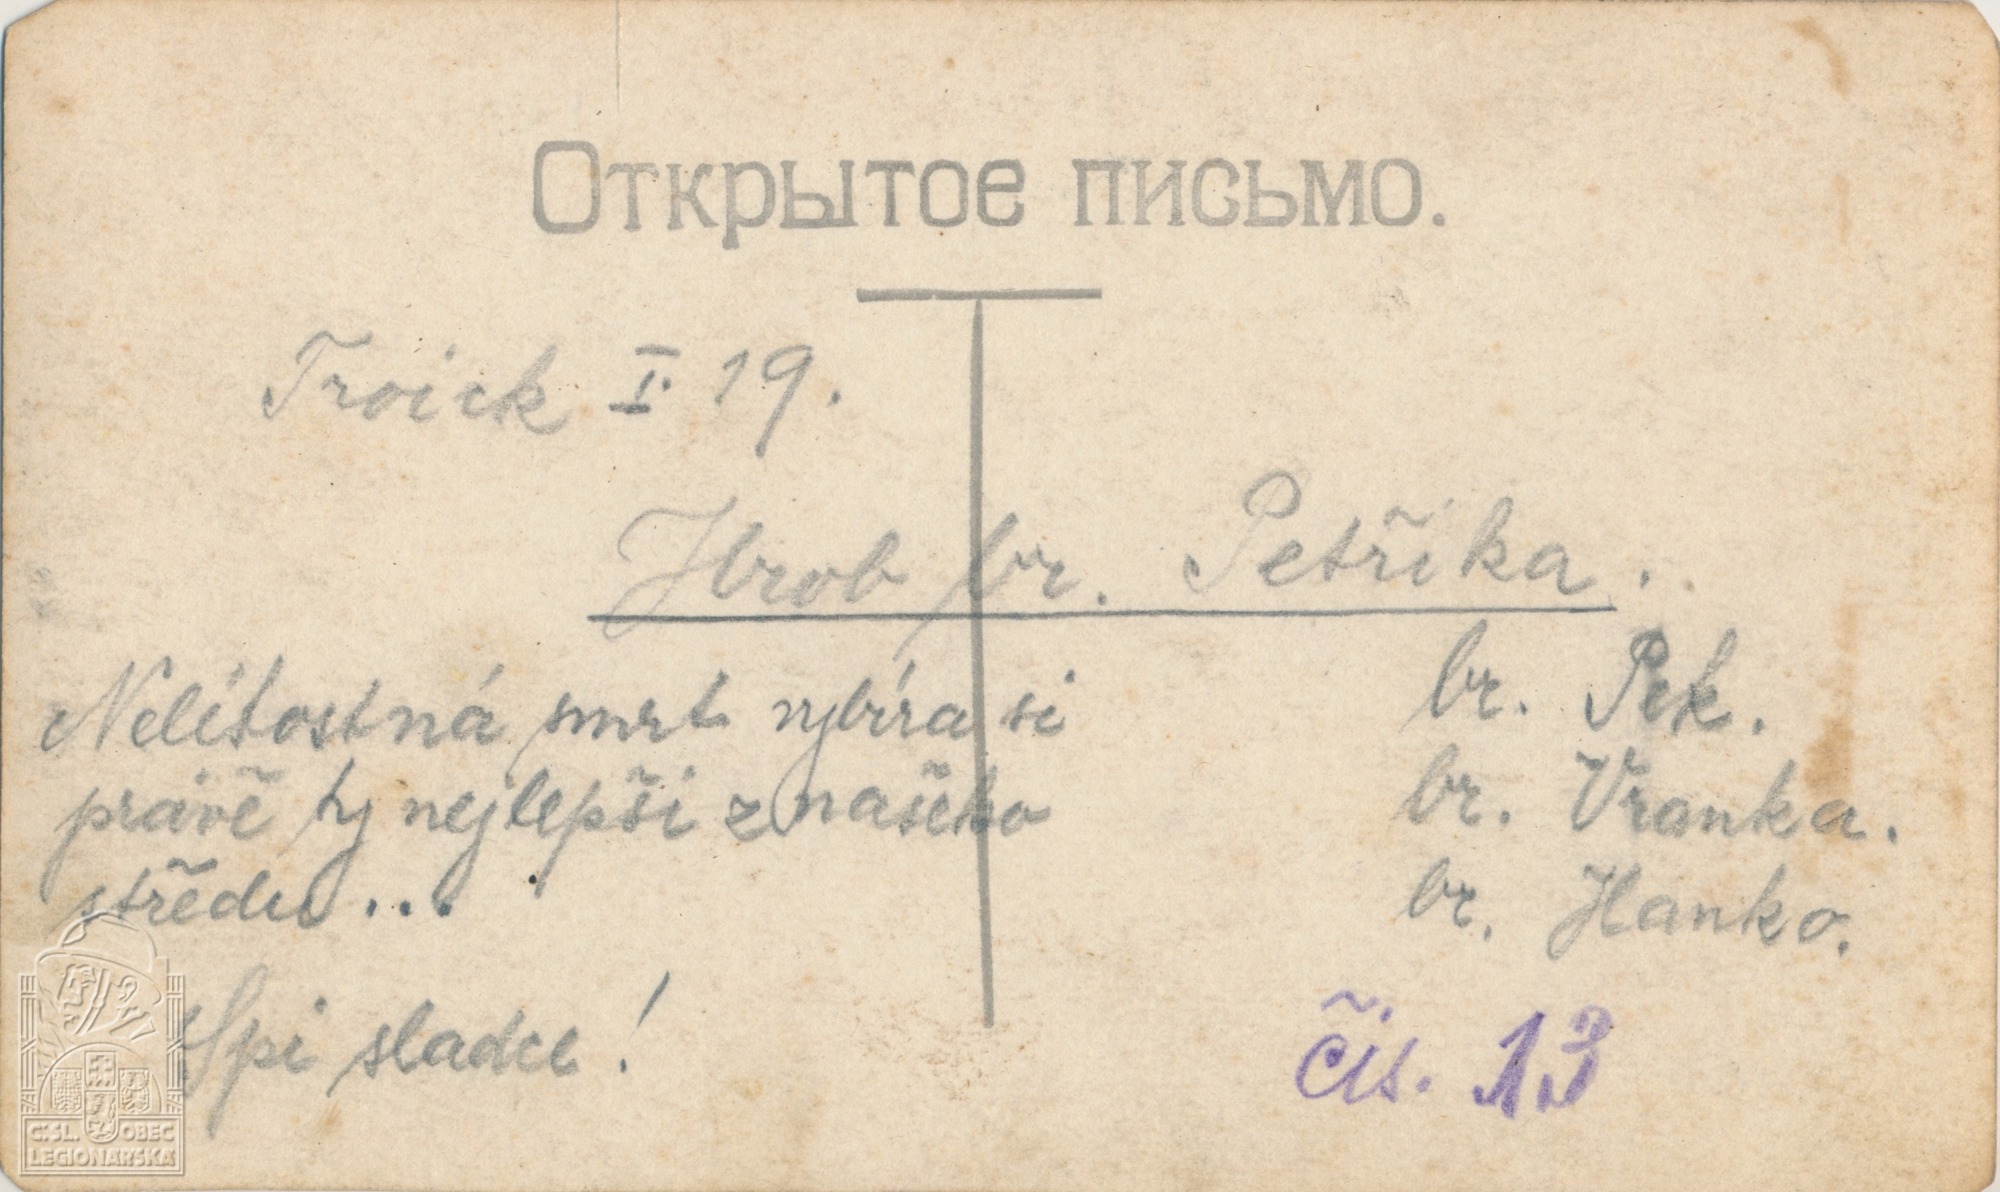 Открытое письмо.
Troick I. 19.
Hrob br. Petříka.
Nelítostná smrt vybírá si
právě ty nejlepší z našeho
středu...
Spi sladce!
br. Pek.
br. Vranka.
br. Hanko.
čís. 13
Č.SL. OBEC
LEGIONÁŘSKÁ